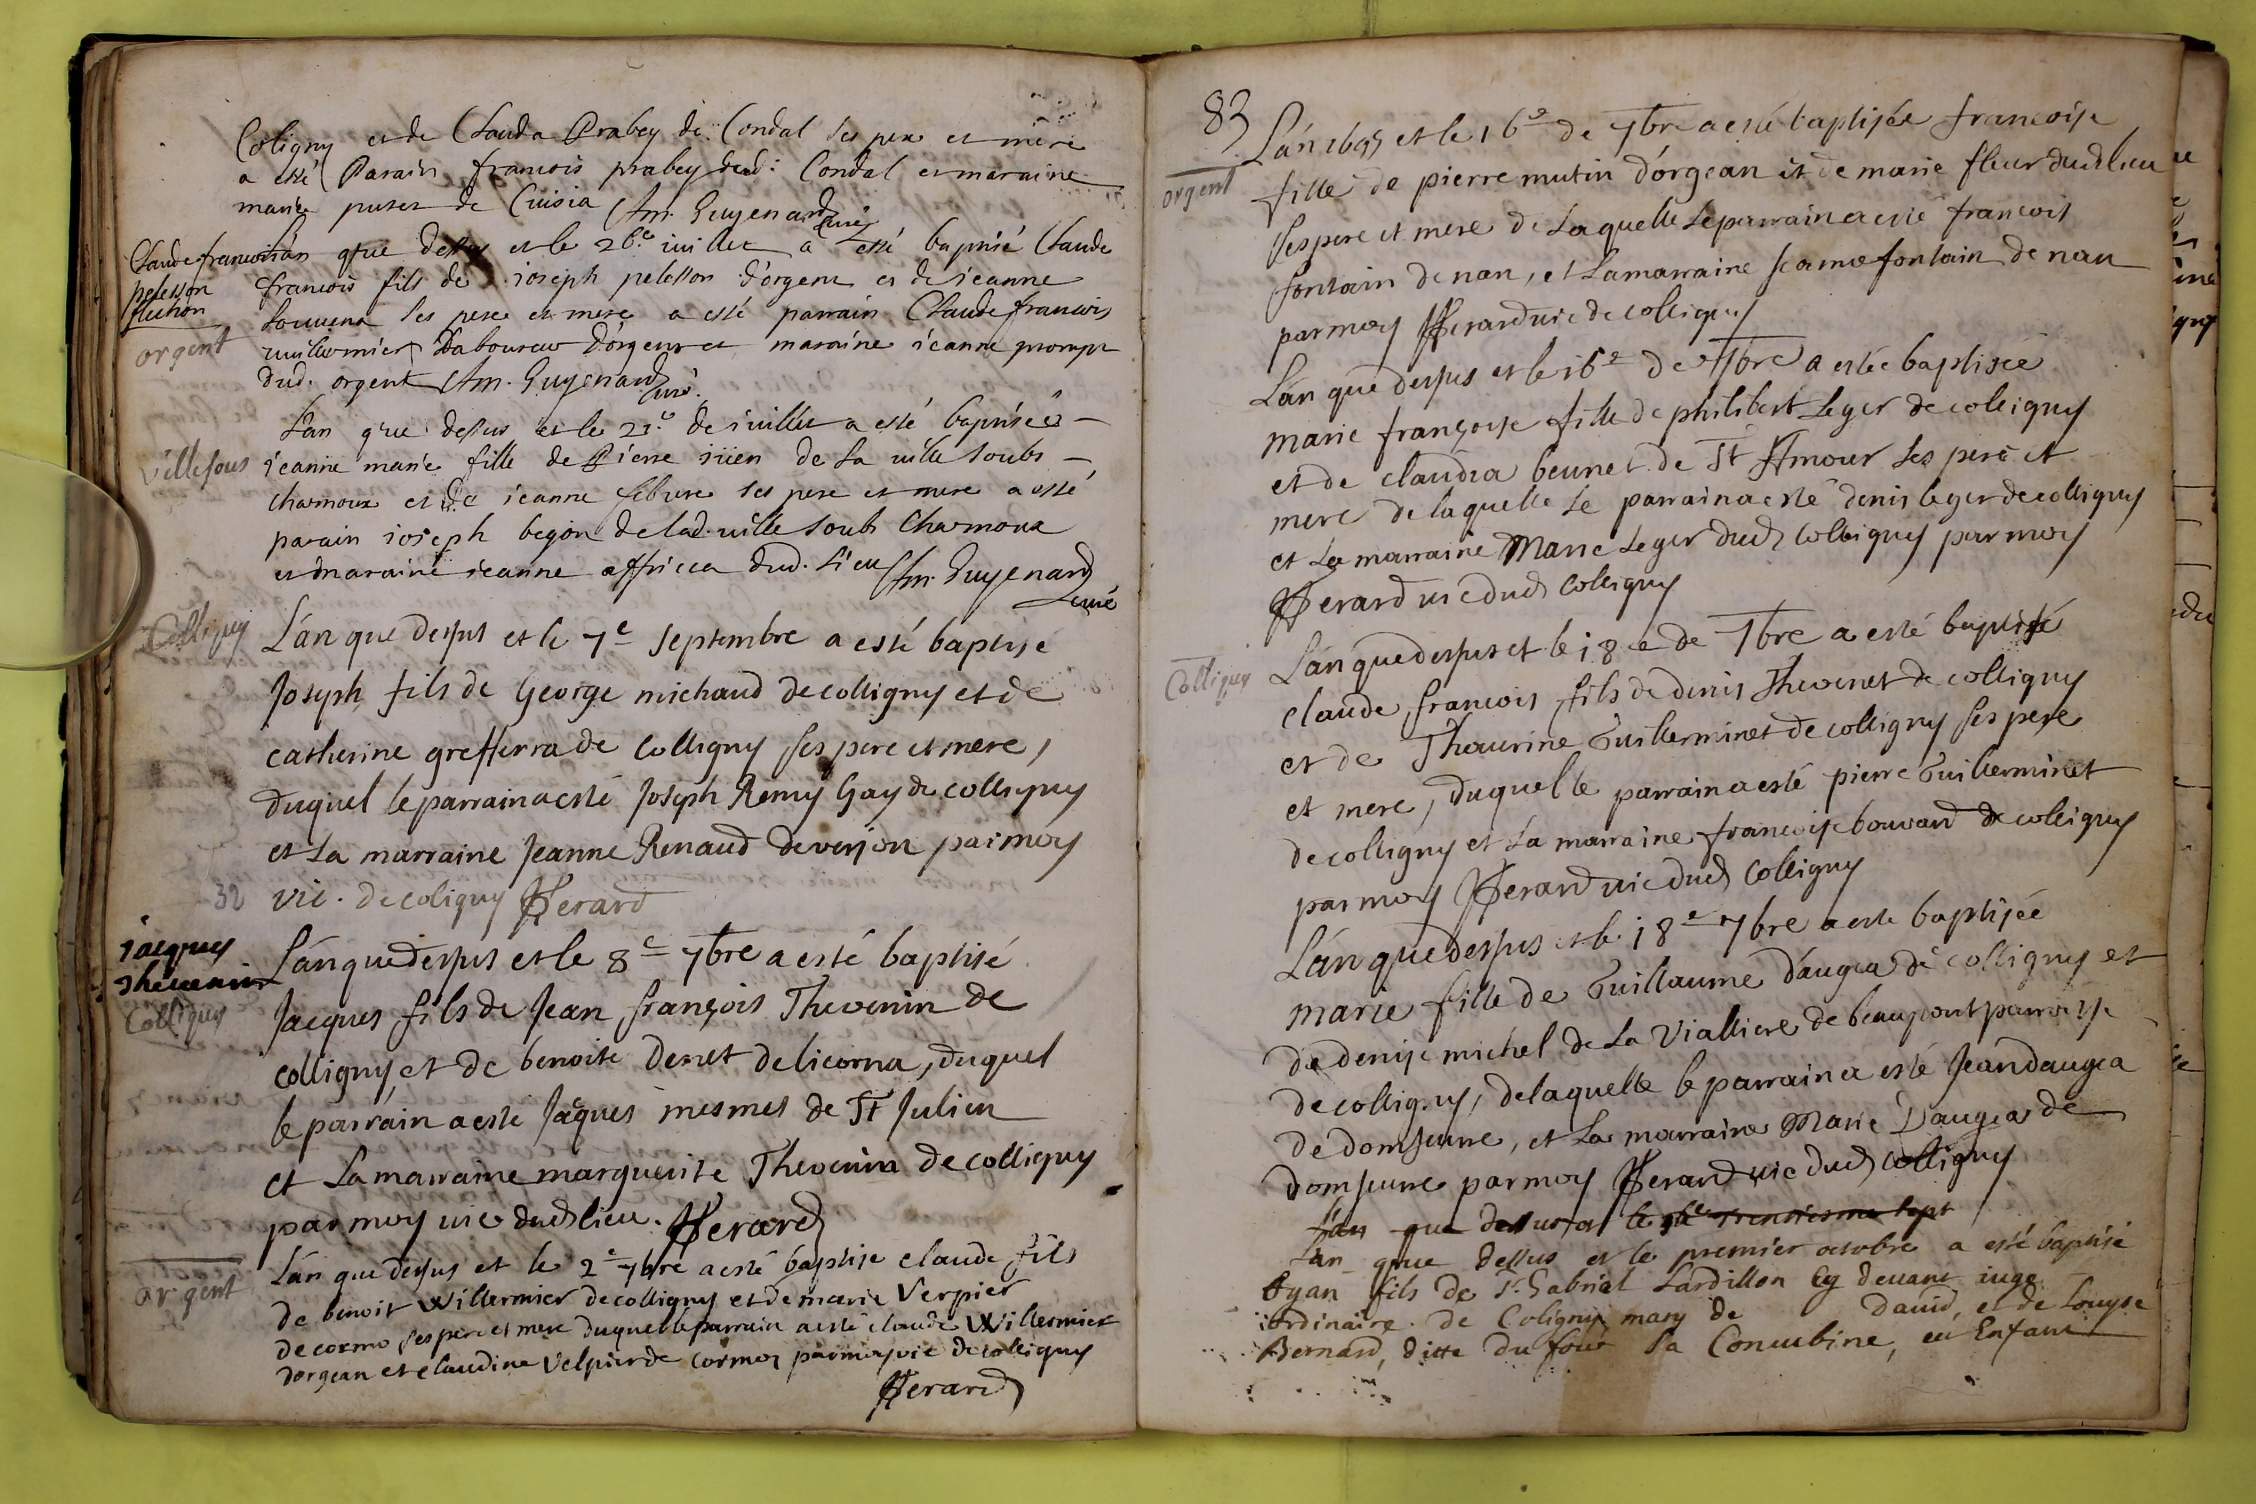 Coligny et de Clauda Prabey de Condal ses pere et mere
a esté Parain francois prabey dud: Condal et maraine
marie putet de Cuisia Am. Guyenard
curé
Claude francois
pelesson
fluthon
orgent
L'an que dessus et le 26.e iuillet a esté baptisé Claude
francois fils de ioseph pelesson d'orgent et de ieanne
ses pere et mere a esté parrain Claude francois
vuillermier Laboureur d'orgent et maraine ieanne prompt
dud. orgent Am. Guyenard
curé.
villesous
L'an que dessus et le 23.e de iuillet a esté baptisée
ieanne marie fille de Pierre iüen de la uille soubs
charmoux et de ieanne febure ses pere et mere a esté
parain ioseph begon de lad. uille soubs Charmoux
et maraine ieanne affricca dud. Lieu Am. Guyenard
curé
Colligny
L'an que desus et le 7e septembre a esté baptisé
Joseph fils de George michaud de colligny et de
catherine grefferra de Colligny ses pere et mere,
duquel le parrain a esté Joseph Remy Gay de colligny
et La marraine Jeanne Renaud de verjon par moy
32
vic. de coligny JHerard
jacques
thevenin
Colligny
L'an que desus et le 8e 7bre a esté baptisé
Jacques fils de Jean françois Thevenin de
colligny et de benoite Denet de licorna, duquel
le parrain a esté Jaques mesmes de St Julien
et La marraine marguerite Thevenin de colligny
par moy vic dud lieu. JHerard
orgent
L'an que desus et le 2e 7bre a esté baptisé claude fils
de benoit Willermier de colligny et de marie Verpier
de cormo ses pere et mere duquel le parrain a esté claude Willermier
dorgean et claudine Velpier de cormoz par moy vic de colligny
JHerard
83
orgent
L'an 1695 et le 16e de 7bre a esté baptisée francoise
fille de pierre mutin d'orgean et de marie fleur dud lieu
ses pere et mere de Laquelle Le parrain a esté francois
fontain de nan, et La marraine Jeanne fontain de nan
par moy JHerard vic de colligny
L'an que desus et le 16e de 7bre a estée baptisée
marie françoise fille de philibert Leger de colligny
et de claudra beunet de St Amour ses pere et
mere de laquelle Le parrain a esté denis leger de colligny
et La marraine Marie Leger dud Colligny par moy
JHerard vic dud Colligny
Colligny
L'an que desus et le 18e de 7bre a esté baptisé
claude francois fils de denis Thevenet de colligny
et de Thevurine Guillerminet de colligny ses pere
et mere, duquel le parrain a esté pierre Guillerminet
de colligny et La marraine francoise bouvard de colligny
par moy JHerard vic dud Colligny
L'an que desus et le 18e 7bre a esté baptisée
marie fille de Guillaume d'augea de colligny et
de denise michel de La Vialliere de beaupont parroisse
de colligny, de laquelle le parrain a esté Jean daugea
de domsurre, et La marraine Marie Daugea de
domsurre par moy JHerard vic dud colligny
L'an que dessus et le trentiesme sept
L'an que dessus et le premier octobre a esté baptisé
Oyan fils de Sr. Gabriel Lardillon Cy deuant iuge
ordinaire de Coligny mary de David, et de Louyse
Bernard, ditte du four sa Concubine, eü Enfant